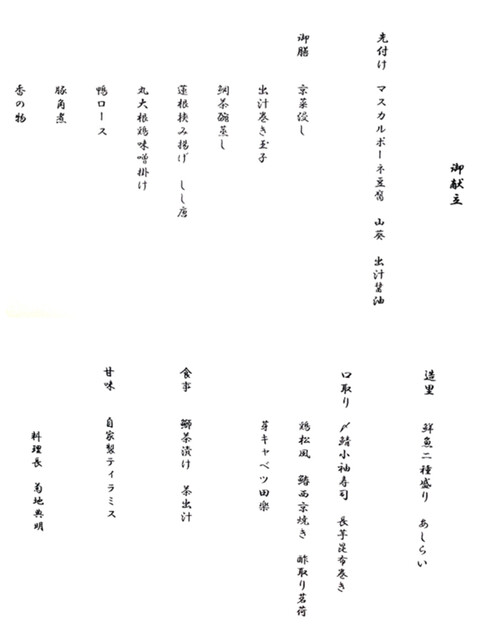 御献立
先付け マスカルポーネ豆腐 山葵 出汁醤油
御膳 京菜浸し
出汁巻き玉子
鯛茶碗蒸し
蓮根挟み揚げ しし唐
丸大根鶏味噌掛け
鴨ロース
豚角煮
香の物
造里 鮮魚二種盛り あしらい
口取り 〆鯖小袖寿司 長芋昆布巻き
鶏松風 鰆西京焼き 酢取り茗荷
芽キャベツ田楽
食事 鰤茶漬け 茶出汁
甘味 自家製ティラミス
料理長 菊地典明